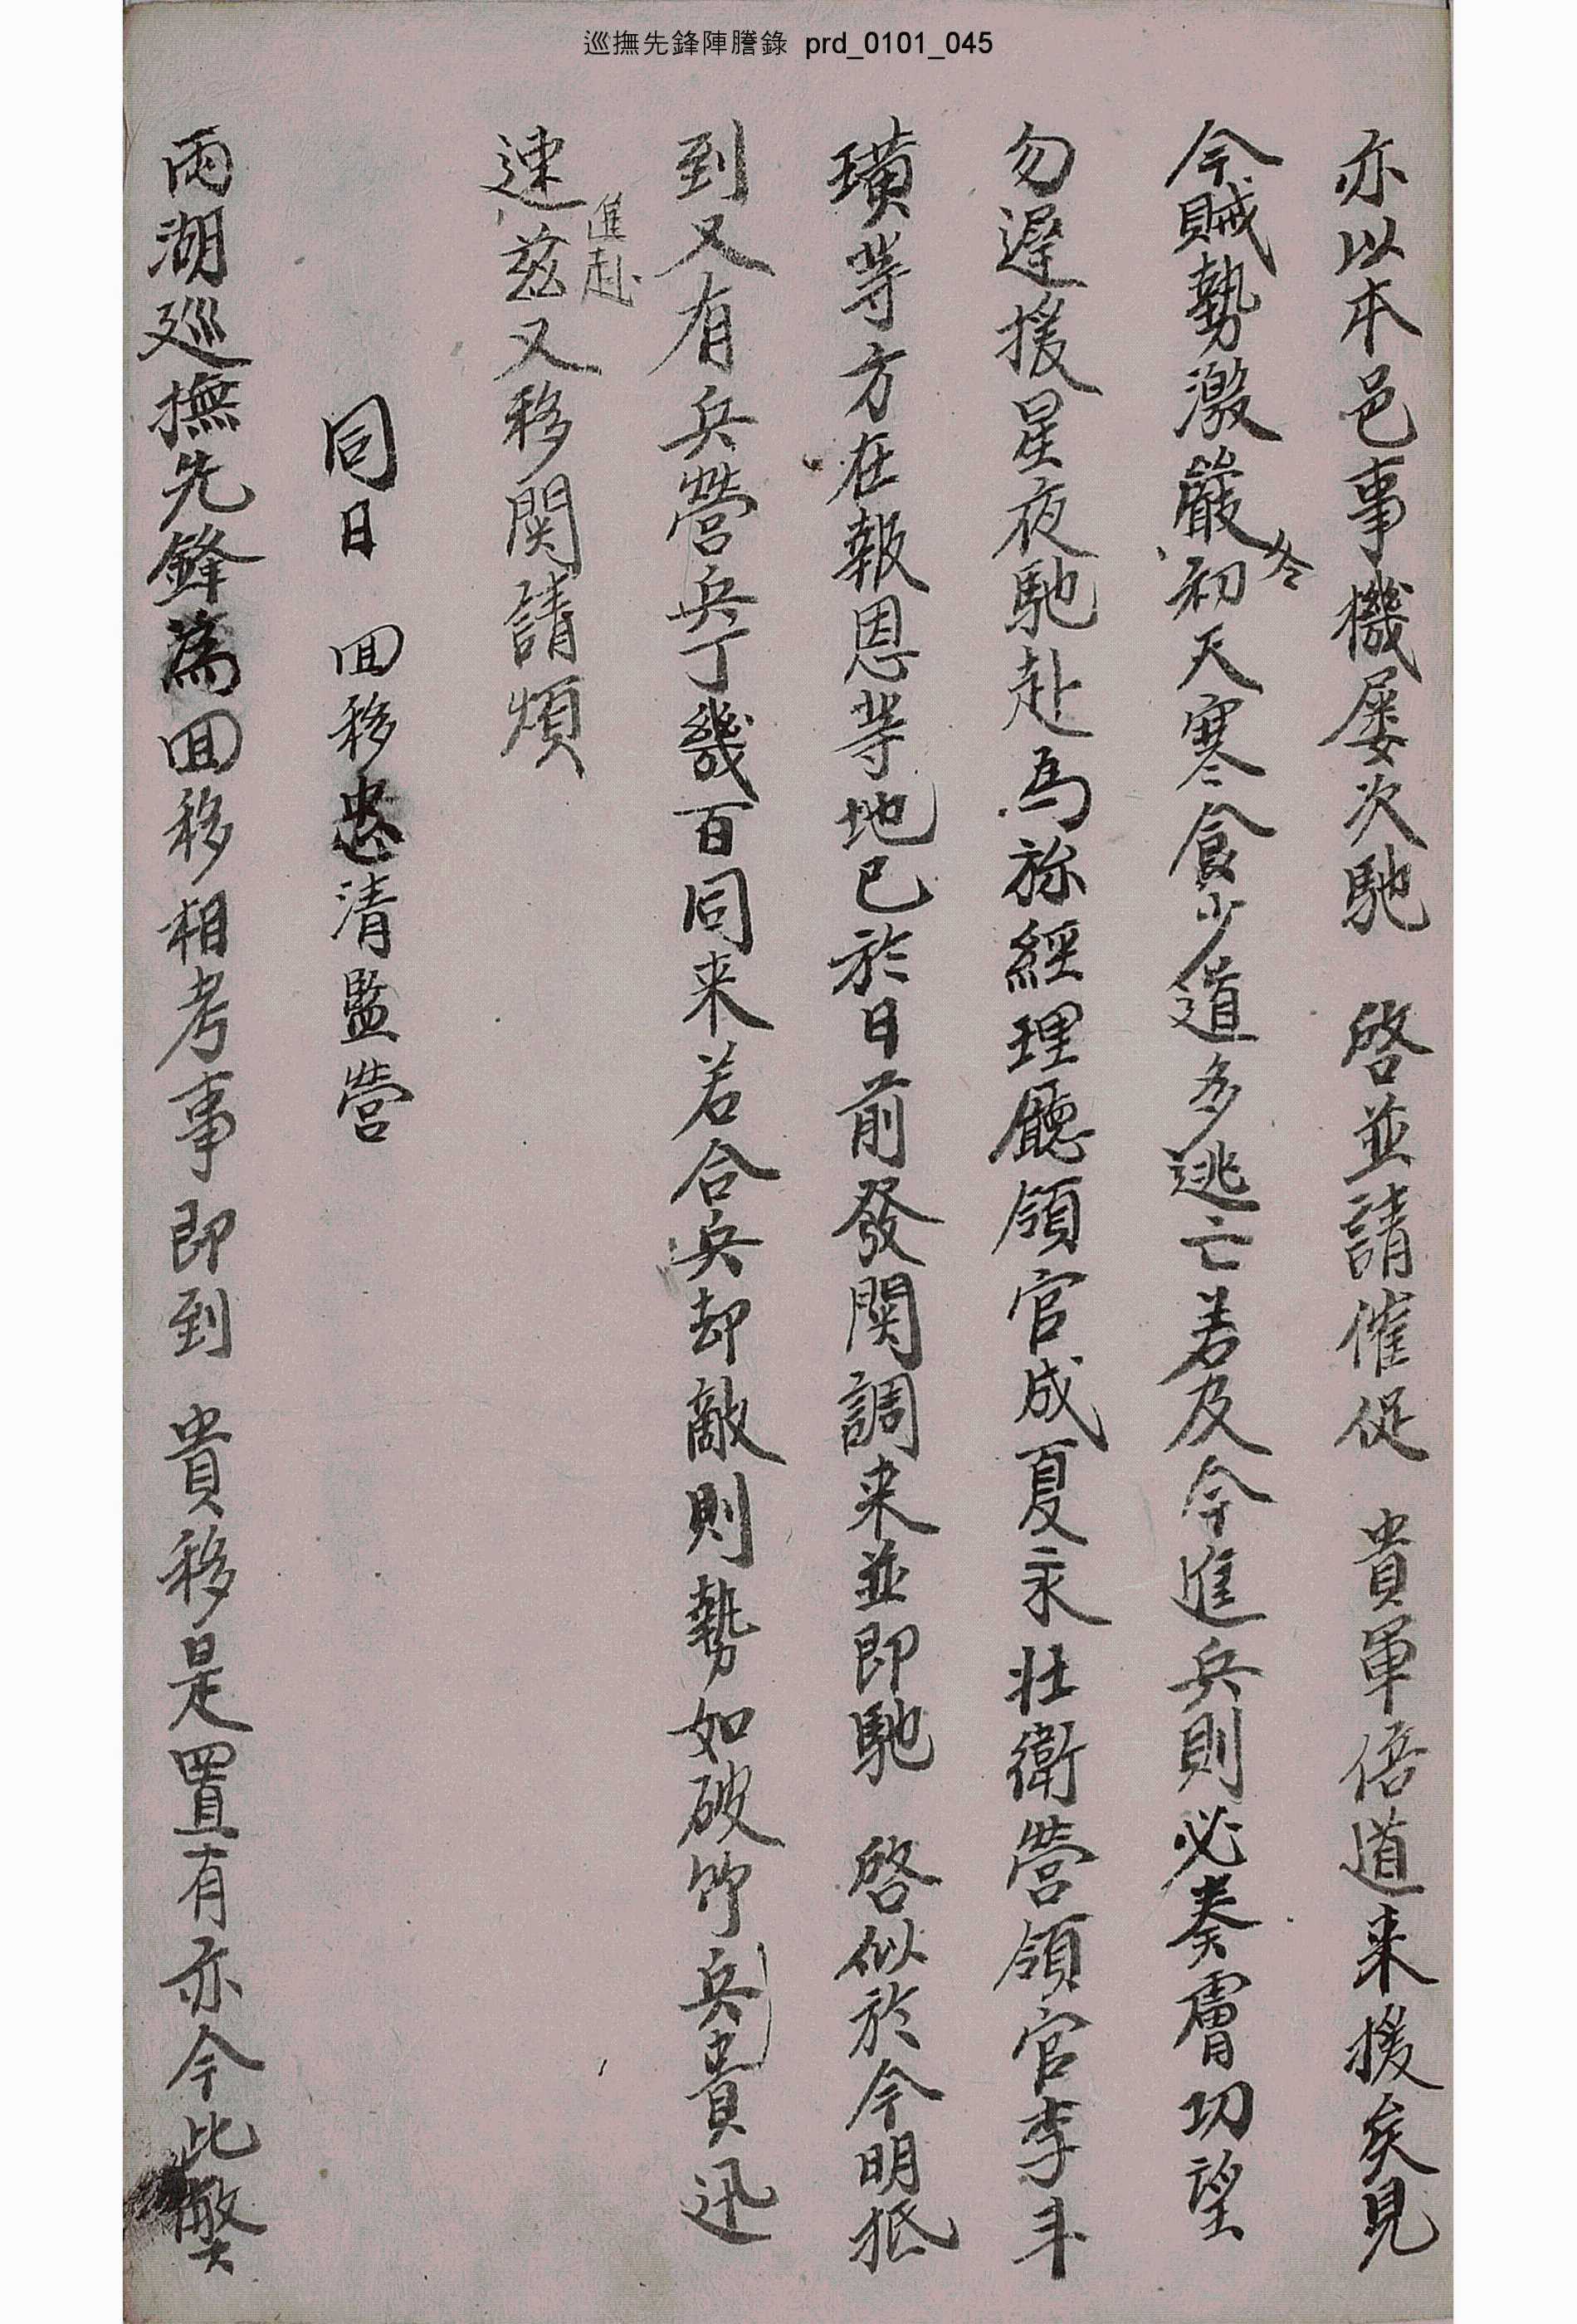 巡撫先鋒陣謄錄 prd_0101_045
亦以本邑事機屢次馳 啓並請催促 貴軍倍道来援矣見
今賊勢激嚴初冬天寒食少道多逃亡若及今進兵則必奏膚功望
勿遲援星夜馳赴爲祢經理廳領官成夏永壯衛營領官李斗
璜等方在報恩等地已於日前發関調来並即馳 啓似於今明抵
到又有兵營兵丁幾百同来若合兵却敵則勢如破竹兵貴迅
速進赴兹又移関請煩
同日 回移忠清監営
兩湖巡撫先鋒爲回移相考事即到 貴移是置有亦今此獘